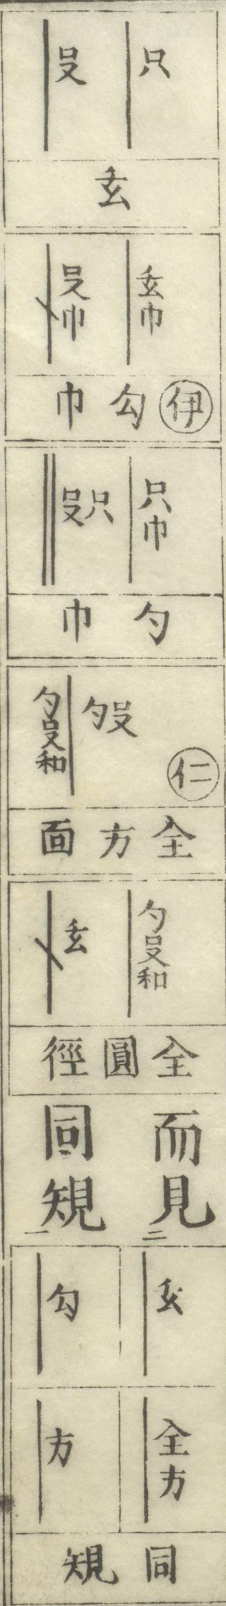 只
殳
玄
玄巾
殳巾
伊 勾巾
只巾
只殳
勺巾
仁
殳勺
勺殳和
全方面
勺殳和
玄
全圓徑
而見二
同規一
玄
勾
全方
方
同規